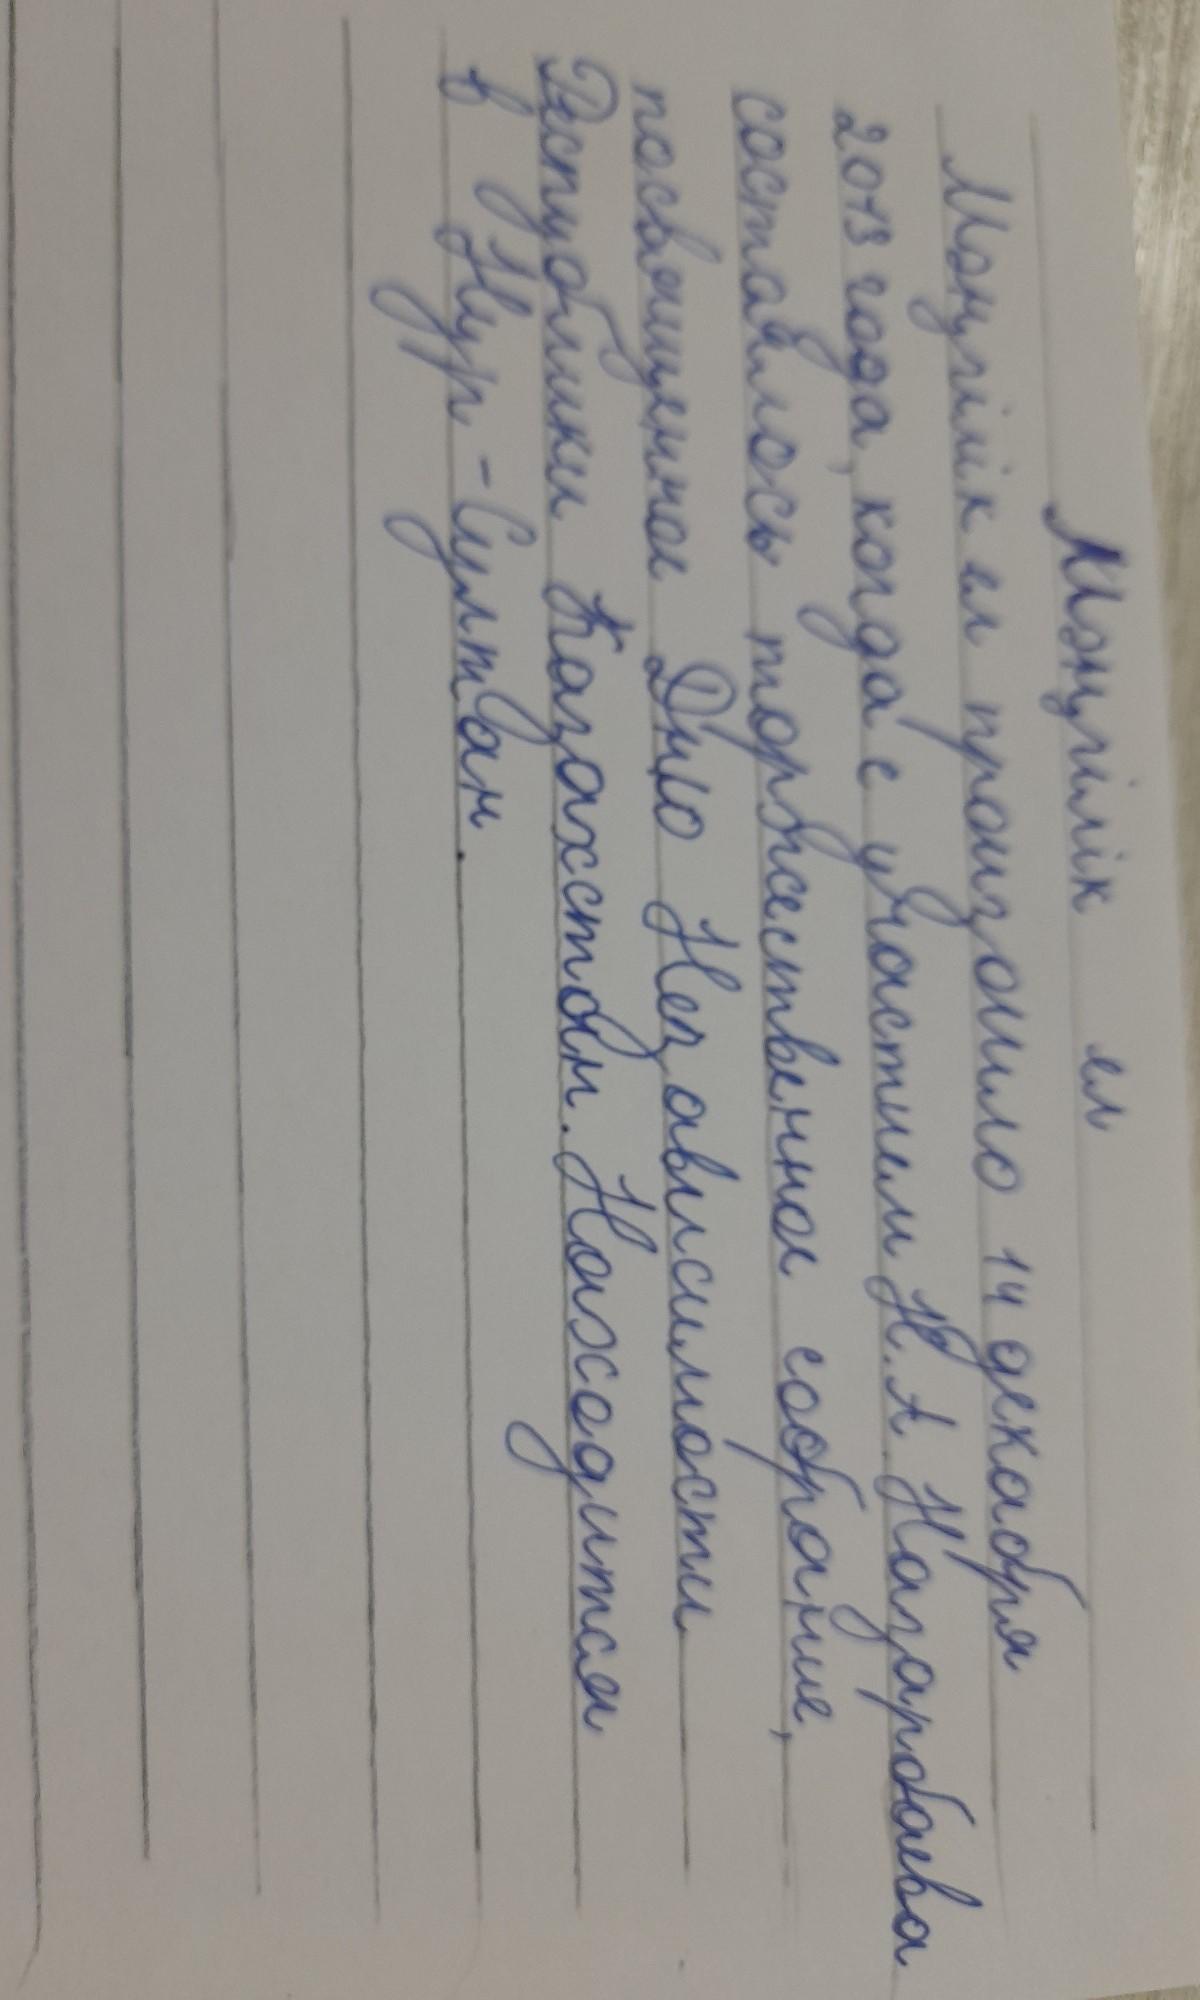 Мәңгілік ел
Мәңгілік ел произошло 14 декабря
2013 года, когда с участием Н.А. Назарбаева
состаялось торжественное собрание,
посвященное Дню Независимости
Республики Казахстан. Находится
в Нур-Султан.